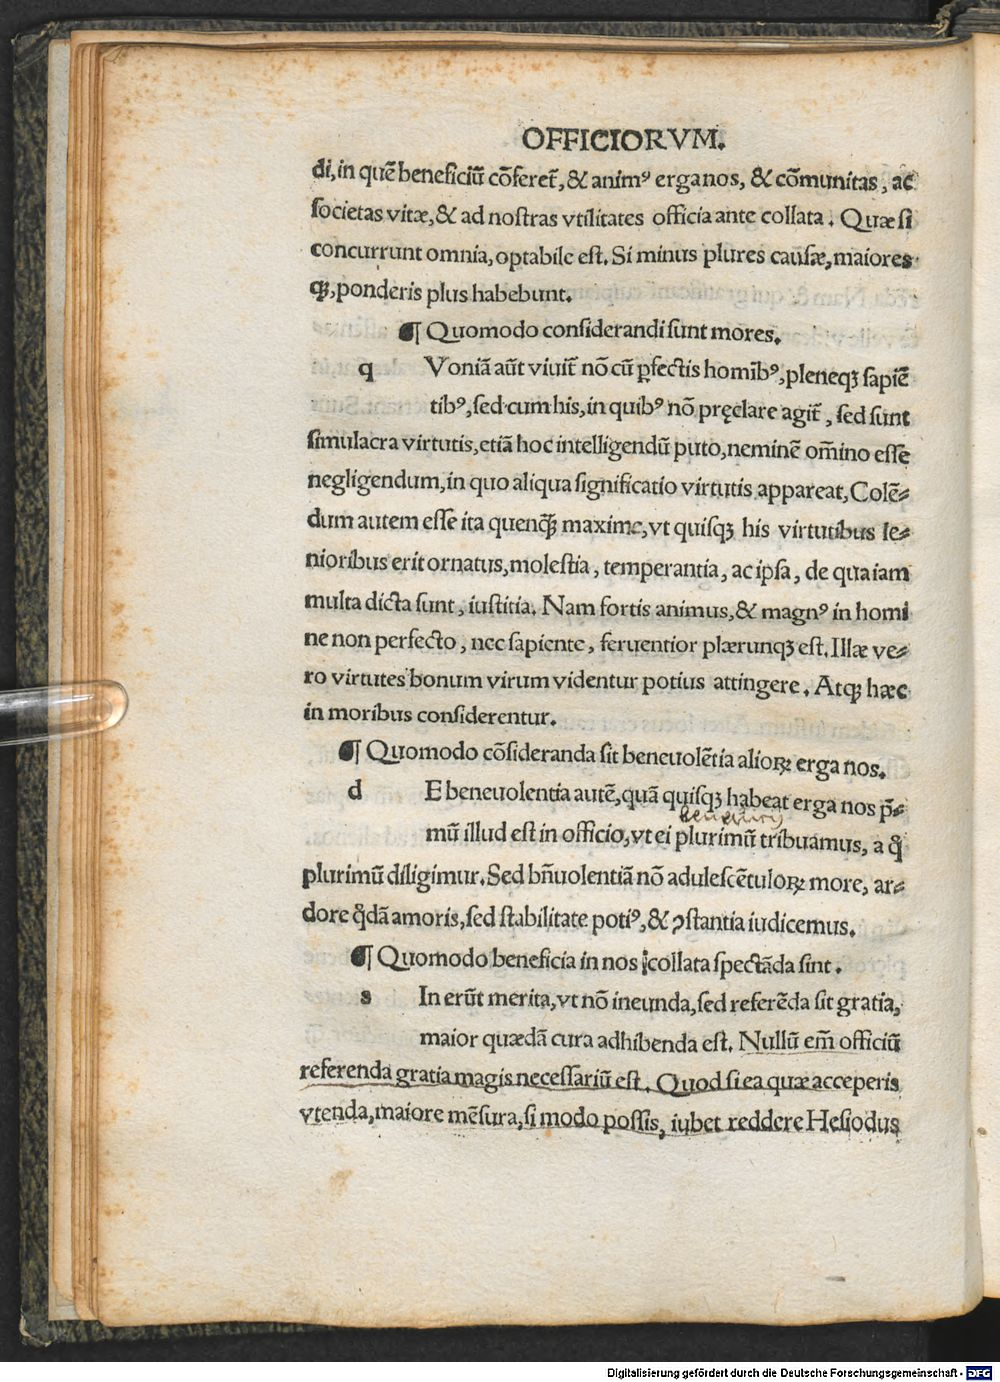 OFFICIORVM.
di, in quē beneficiū cōferet̄, & animꝰ erga nos, & cōmunitas, ac
ſocietas vitæ, & ad noſtras vtilitates officia ante collata. Quæ ſi
concurrunt omnia, optabile eſt. Si minus plures cauſæ, maiores
qꝫ, ponderis plus habebunt.
¶ Quomodo conſiderandi ſunt mores.
q Voniā aūt viuit̄ nō cū ꝑfectis homībꝰ, pleneqꝫ ſapiē
tibꝰ, ſed cum his, in quibꝰ nō pręclare agit̄, ſed ſunt
ſimulacra virtutis, etiā hoc intelligendū puto, neminē om̄ino eſſe
negligendum, in quo aliqua ſignificatio virtutis appareat, Colē⸗
dum autem eſſe ita quenqꝫ maxime, vt quiſqꝫ his virtutibus le⸗
nioribus erit ornatus, moleſtia, temperantia, ac ipſa, de qua iam
multa dicta ſunt, iuſtitia. Nam fortis animus, & magnꝰ in homi
ne non perfecto, nec ſapiente, feruentior plærunqꝫ eſt. Illæ ve⸗
ro virtutes bonum virum videntur potius attingere. Atqꝫ hæc
in moribus conſiderentur.
¶ Quomodo cōſideranda ſit beneuolētia alioꝝ erga nos.
d E beneuolentia autē, quā quiſqꝫ habeat erga nos p̄⸗
mū illud eſt in officio, vt ei plurimū tribuamus, a ꝙ̄
plurimū diligimur. Sed bn̄uolentiā nō aduleſcētuloꝝ more, ar⸗
dore ꝙ̄dā amoris, ſed ſtabilitate potiꝰ, & ꝯſtantia iudicemus.
¶ Quomodo beneficia in nos collata ſpectāda ſint.
s In erūt merita, vt nō ineunda, ſed referēda ſit gratia,
maior quædā cura adhibenda eſt. Nullū em̄ officiū
referenda gratia magis neceſſariū eſt. Quod ſi ea quæ acceperis
vtenda, maiore mēſura, ſi modo poſſis, iubet reddere Heſiodus
Digitalisierung gefördert durch die Deutsche Forschungsgemeinschaft - DFG